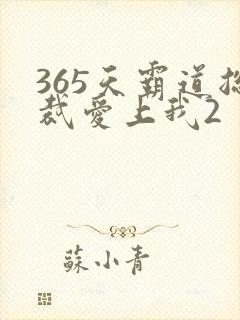 365天霸道总
裁爱上我2
蘇小青